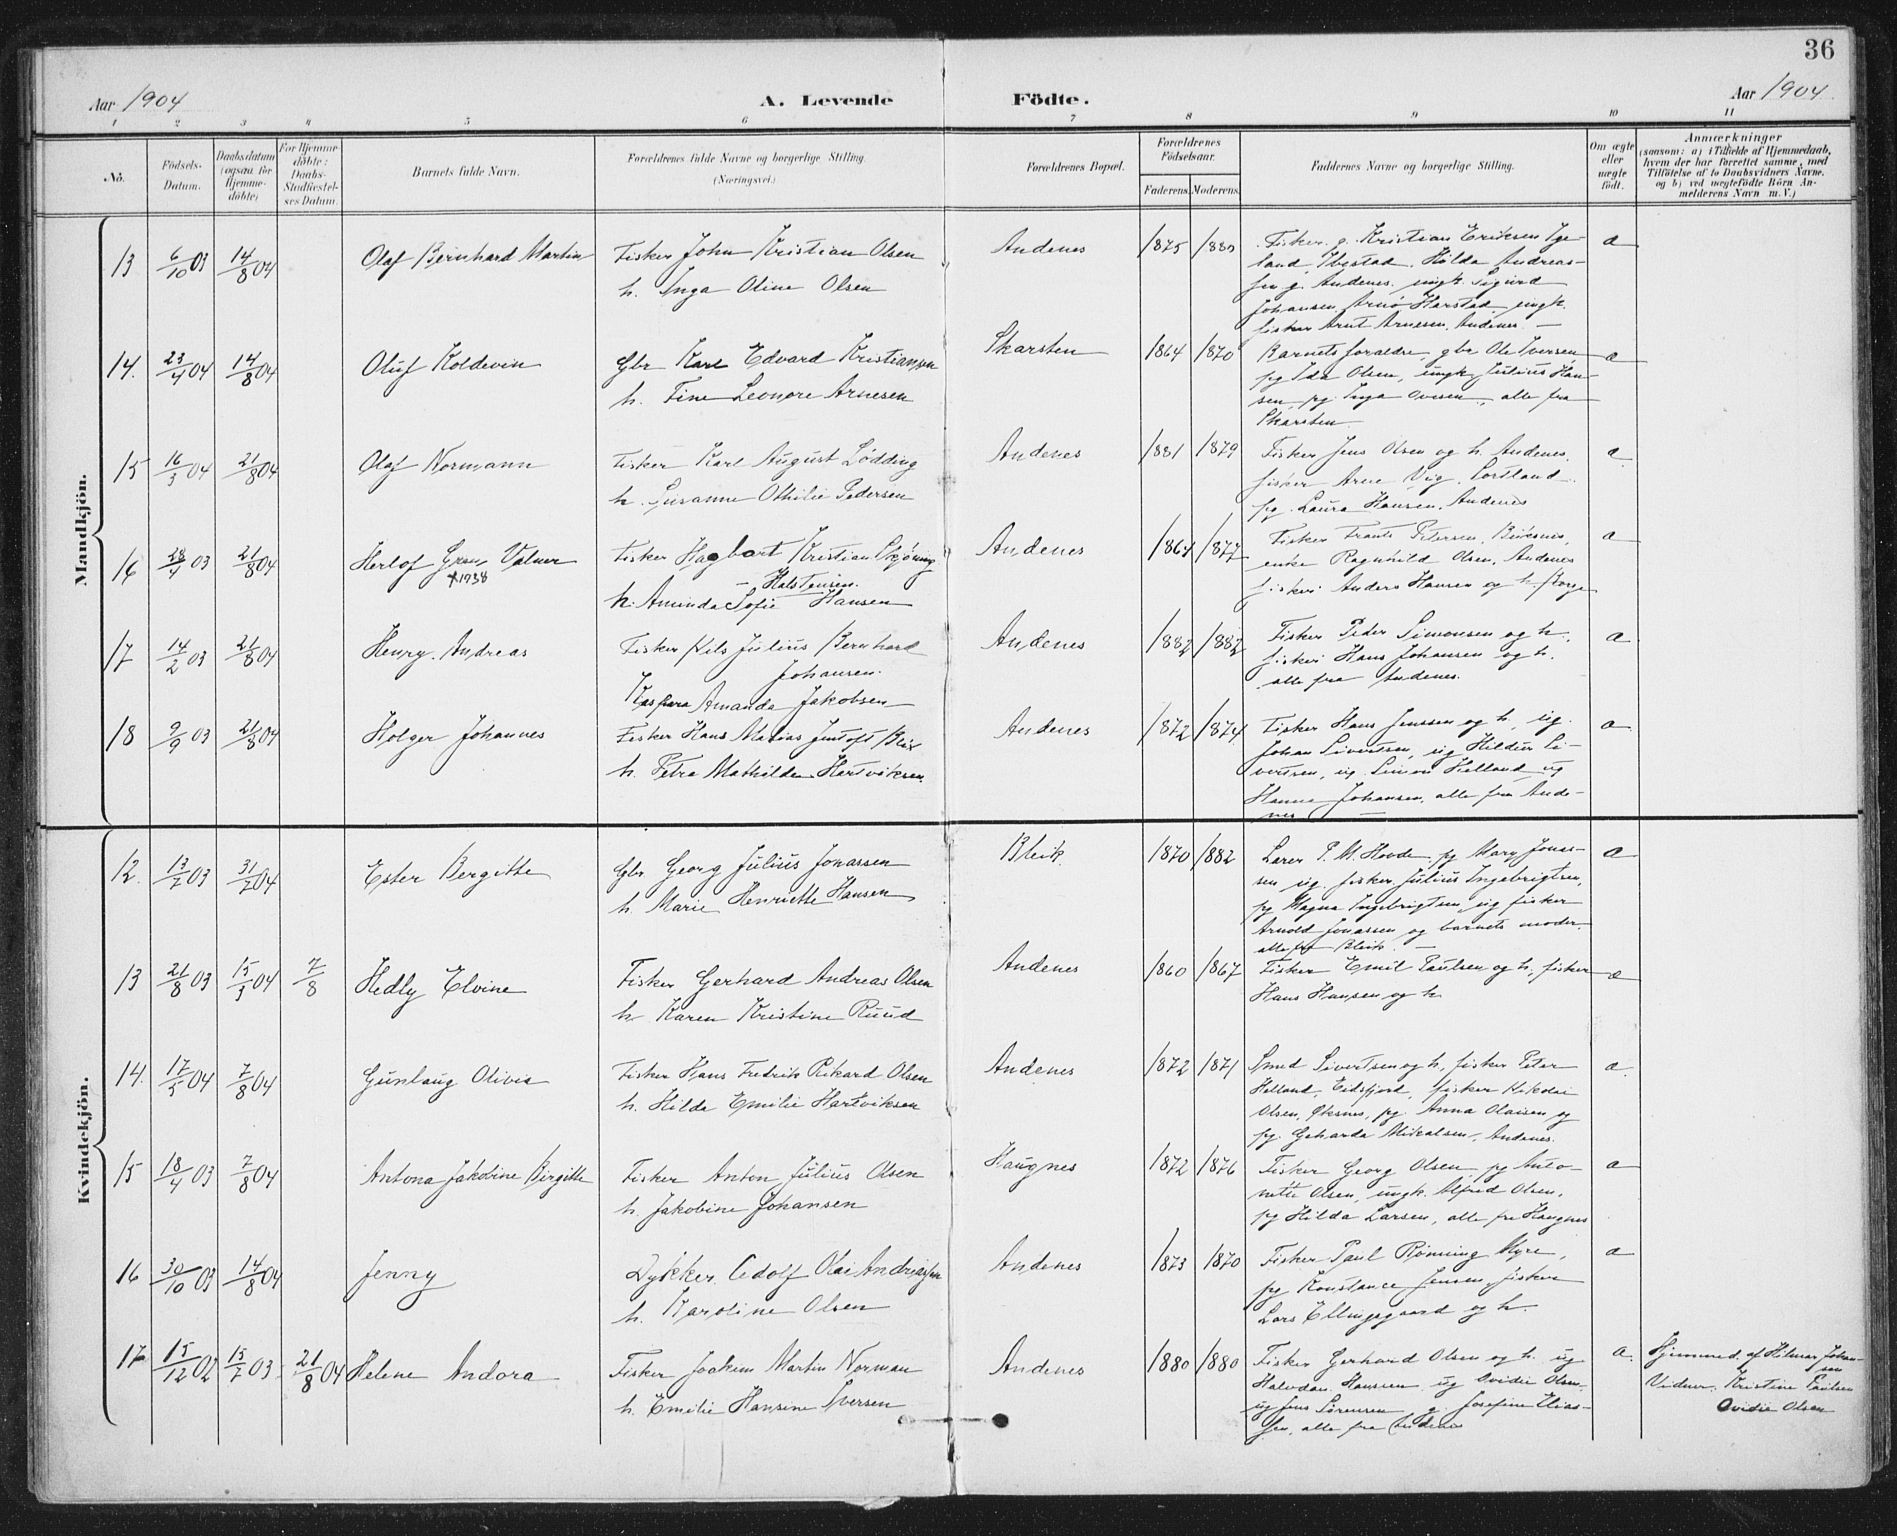 36
Aar 1904 A. Levende Födte. Aar 1904
1 2 3 4 5 6 7 8 9 10 11
No.
Födsels-
Datum.
Daabsdatum
(ogsaa for
Hjemme-
döbte)
For Hjemme-
döbte:
Daabs-
Stadfæstel-
ses Datum.
Barnets fulde Navn.
Forældrenes fulde Navne og borgerlige Stilling.
(Næringsvei.)
Forældrenes Bopæl.
Forældrenes
Födselsaar.
Faderens. Moderens.
Faddernes Navne og borgerlige Stilling.
Om ægte
eller
uægte
født.
Anmærkninger
(saasom: a) i Tilfælde af Hjemmedaab,
hvem der har forrettet samme, med
Tilföielse af to Daabsvidners Navne.
og b) ved uægtefödte Börn An-
melderens Navn m. V.)
Mandkjön.
13 6/10 03 14/8 04 Olaf Bernhard Martin
Fisker John Kristian Olsen
h. Inga Oline Olsen
Andenes 1875 1880
Fisker g. Kristian Eriksen Ige-
land, Ibestad, Hilda Andreas-
sen g. Andenes, ungk. Sigurd
Johansen, Harstad, ungk.
fisker Arnt Arnesen, Andenes
a
14. 23/4 04 14/8 04 Oluf Koldevin
Gbr Karl Edvard Kristiansen
h. Fine Leonore Arnesen
Skarsten 1864 1870
Barnets forældre, gbr Ole Iversen,
pg Ida Olsen, ungk Julius Han-
sen, pg. Inga Ovesen, alle fra
Skarsten
a
15 16/3 04 21/8 04 Olaf Normann
Fisker Karl August Lødding
h. Susanne Othilie Pedersen
Andenes 1881 1879
Fisker Jens Olsen og h. Andenes,
fisker Arne Vig, Sortland.
pg. Laura Hansen, Andenes
a
16 28/4 03 21/8 04 Herlof Valner
1938
Fisker Hagbart Kristian Skjöning
Halstensen.
h. Aminda Sofie Hansen
Andenes 1864 1877
Fisker Frants Petersen,
enke Ragnhild Olsen, Andenes
fisker Anders Hansen og h.
a
17 14/2 03 21/8 04 Henry Andreas
Fisker Nils Julius Bernhard
Johansen.
Kaspara Amanda Jakobsen
Andenes 1882 1882
Fisker Peder Simonsen og h.,
fisker Hans Johansen og h.
alle fra Andenes.
a
18 9/9 03 21/8 04 Holger Johannes
Fisker Hans Jentoft Blix
h. Petra Mathilde Hartviksen.
Andenes 1872 1874
Fisker Hans Jenssen og h., ug.
Johan Sivertsen, ug Hildur Si-
vertsen, ug. Simon Helland, ug
Hanna Johansen, alle fra Ande-
nes
a
Kvindekjön.
12. 13/7 03 31/7 04 Ester Bergitte
Gbr. Georg Julius Jonassen
h. Marie Henriette Hansen
Bleik 1870 1882
Lærer P. M. Hovde, pg Mary Jonas-
sen ug. fisker Julius Ingebrigtsen,
pg Magna Ingebrigtsen, ug fisker
Arnold Jonassen og barnets moder.
alle fra Bleik.
a
13 21/8 03 15/3 04 7/8 Hedly Elvine
Fisker Gerhard Andreas Olsen
h. Karen Kristine Ruud
Andenes 1860 1867
Fisker Emil Paulsen og h., fisker
Hans Hansen og h
a
14. 17/5 04 7/8 04 Gunlaug Olivia
Fisker Hans Fredrik Rikard Olsen
h. Hilda Emilie Hartviksen
Andenes 1872 1871
Smed Sivertsen og h, fisker Peter
Helland, Eidsfjord, fisker Nikolai
Olsen, Øksnes, pg. Anna Olaisen og
pg. Geharda Mikalsen, Andenes.
a.
15 18/4 03 7/8 04 Antona Jakobine Birgitte
Fisker Anton Julius Olsen
h. Jakobine Johansen
Haugnes 1872 1876
Fisker Georg Olsen, pg Anto-
nette Olsen, ungk. Alfred Olsen,
pg Hilda Larsen, alle fra Haugnes
a
16 30/10 03 14/8 04 Jenny
Dykker Adolf Olai Andreassen
h. Karoline Olsen
Andenes 1873 1870
Fisker Paul Rønning Myre,
pg Konstance Jensen, fisker
Lars Ellingsgaard og h.
a
17 15/12 02 15/7 03 21/8 04 Helene Andora
Fisker Joakim Martin Norman
h. Emilie Hansine Iversen
Andenes 1880 1880
Fisker Gerhard Olsen og h. ug
Halvdan Hanssen, ug Ovidie Olsen,
ug Jens Sørensen, g. Josefine Elias-
sen, alle fra Andenes
a.
Hjemmed. af Hilmar Johan-
sen
Vidner. Kristine Paulsen
Ovidie Olsen